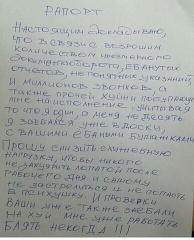 РАПОРТ
Настоящим докладываю,
что в связи с возросшим
количеством
документооборота, ебанутых
отчетов, не понятных указаний,
и миллионов звонков, а
также прочей хуйни поступающей
мне на исполнение учитывая
то что я один, а меня не десять
я заебался уже в доску,
с вашими ебаными бумажками
Прошу снизить служебную
нагрузку, чтобы никого
не захуярить лопатой после
рабочего дня и самому
не застрелиться и не попасть
в психушку и проверки
ваши мне так же заебали
на хуй мне уже работать
блять некогда!!!